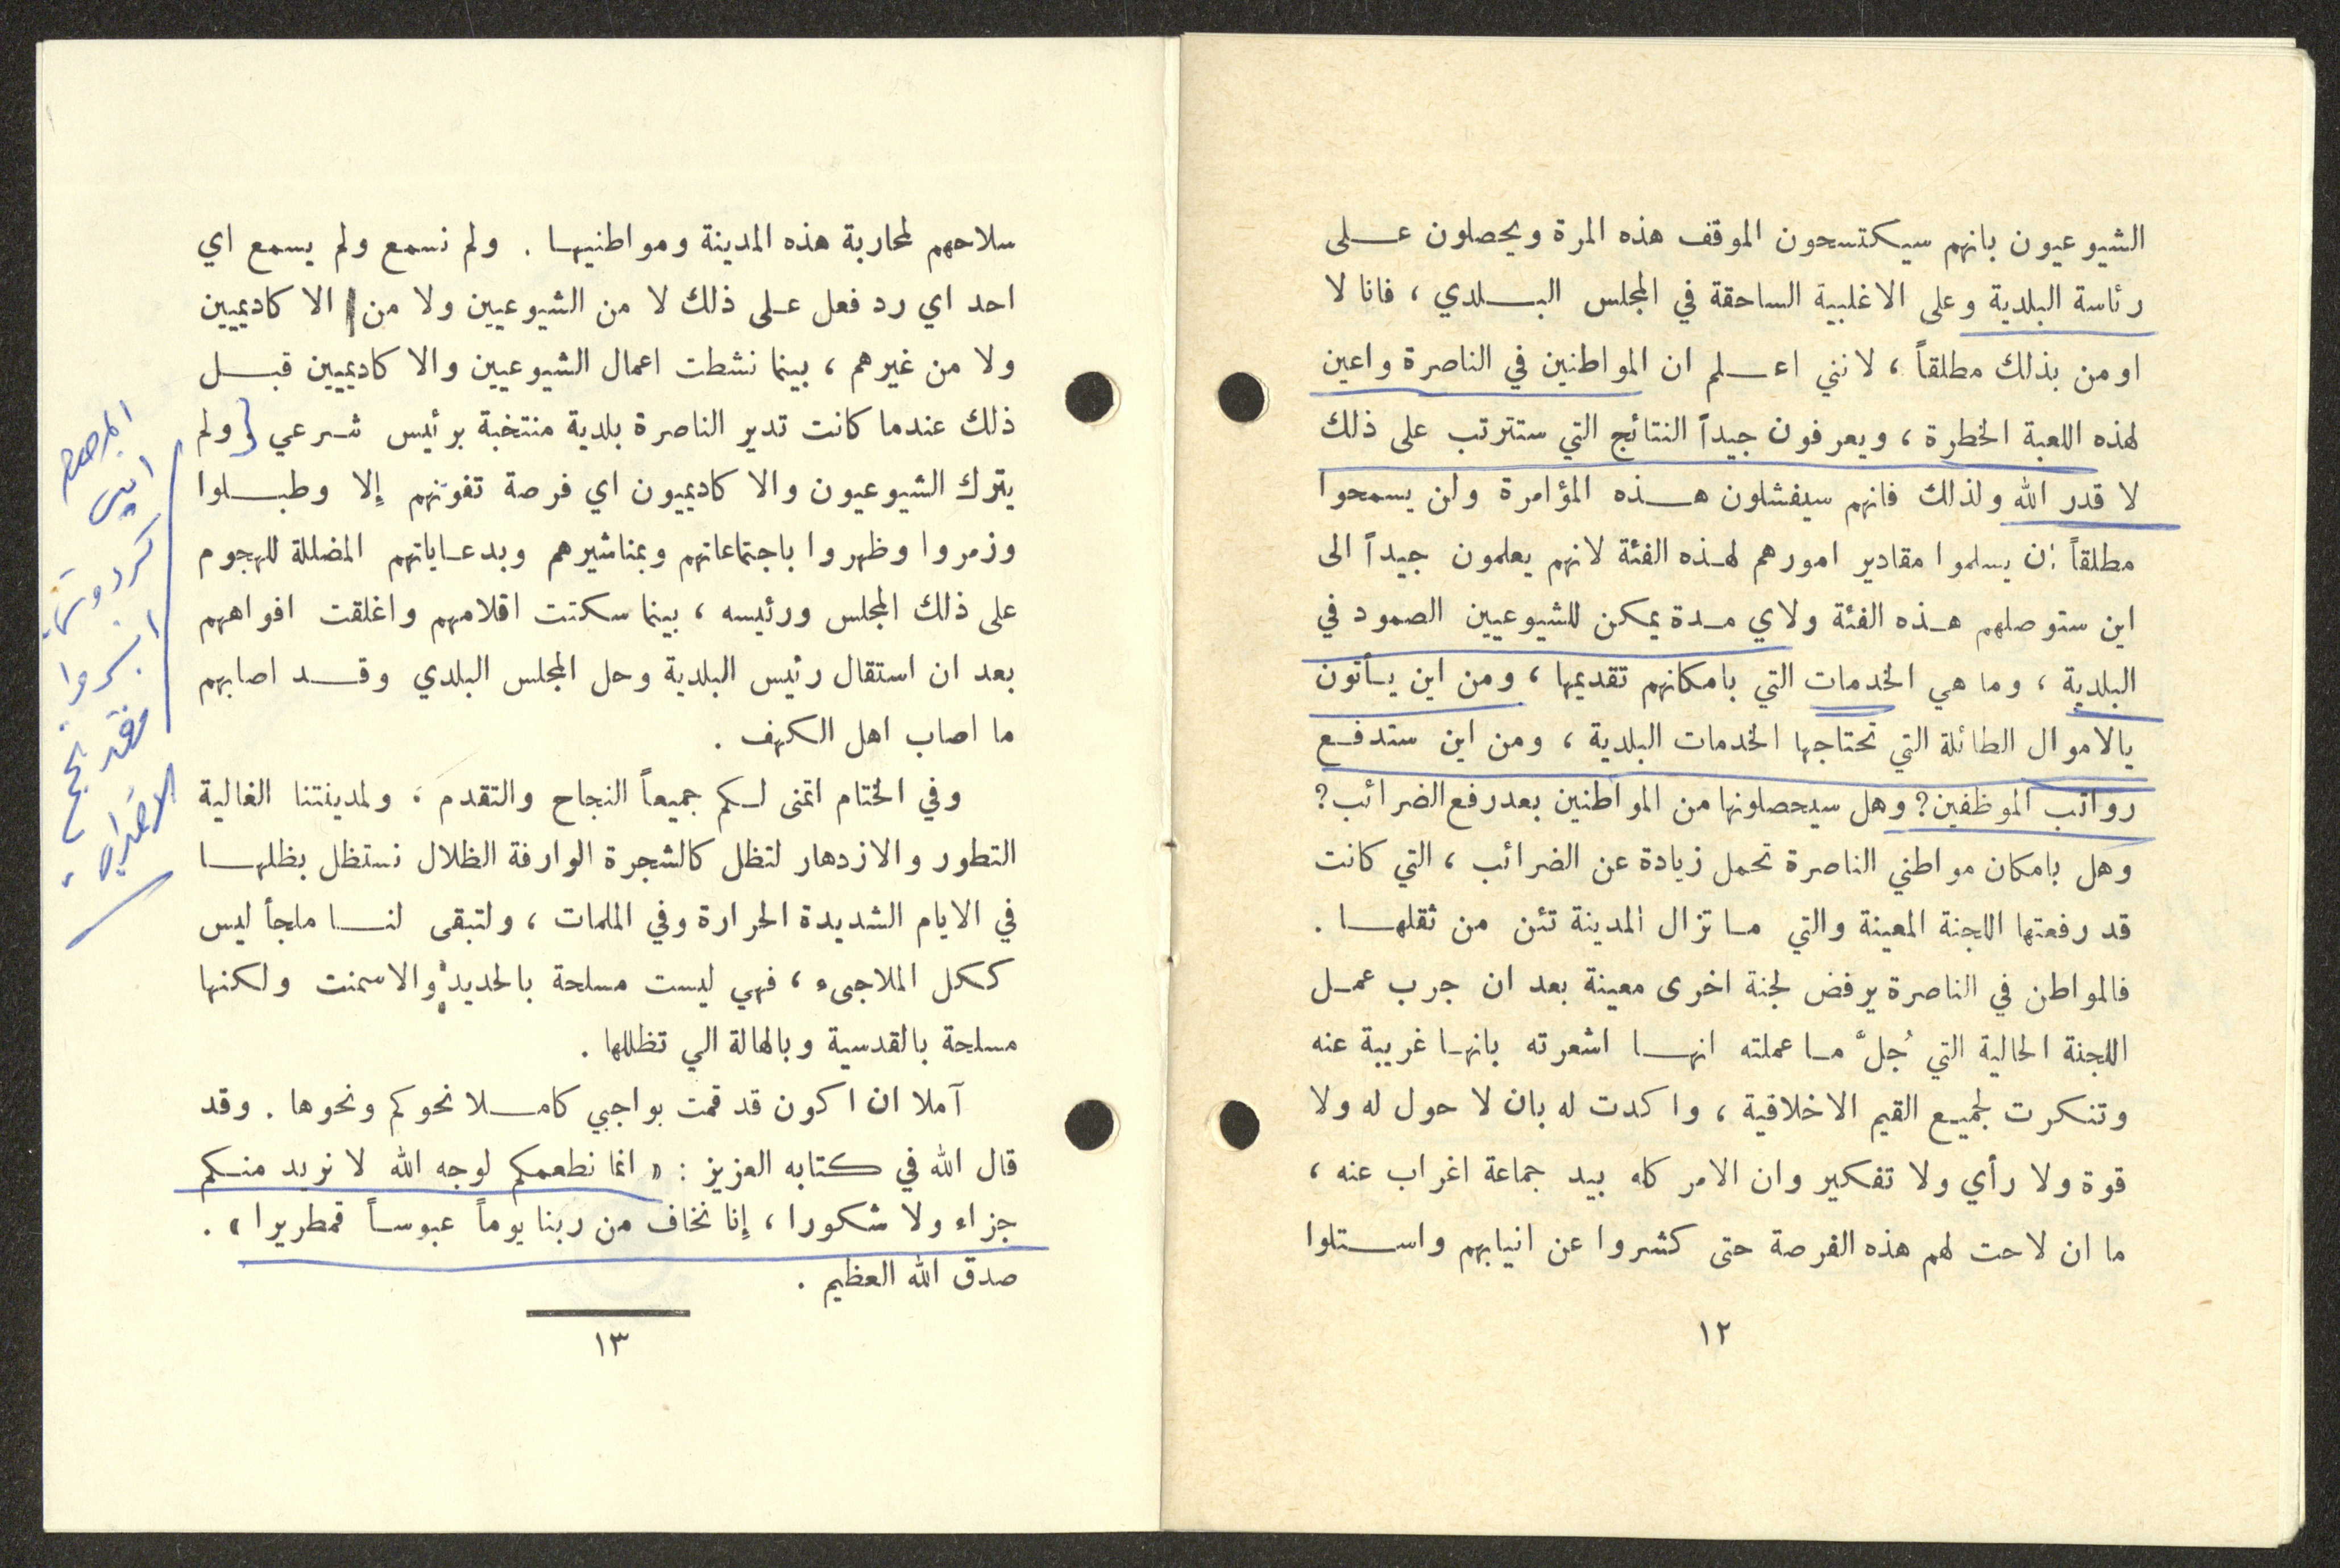 الشيوعيون بانهم سيكتسحون الموقف هذه المرة ويحصلون عـلى
رئاسة البلدية وعلى الاغلبية الساحقة في المجلس البـلدي ، فانا لا
اومن بذلك مطلقاً ، لانني اعـلم ان المواطنين في الناصرة واعين
لهذه اللعبة الخطرة ، ويعرفون جيداً النتائج التي ستترتب على ذلك
لا قدر الله ولذلك فانهم سيفشلون هـذه المؤامرة ولن يسمحوا
مطلقاً ان يسلموا مقادير امورهم لهـذه الفئة لانهم يعلمون جيداً الى
اين ستوصلهم هـذه الفئة ولاي مـدة يمكن للشيوعيين الصمود في
البلدية ، وما هي الخدمات التي بامكانهم تقديمها ، ومن اين يـأتون
بالاموال الطائلة التي تحتاجها الخدمات البلدية ، ومن اين ستدفـع
رواتب الموظفين؟ وهل سيحصلونها من المواطنين بعد رفع الضرائب؟
وهل بامكان مواطني الناصرة تحمل زيادة عن الضرائب ، التي كانت
قد رفعتها اللجنة المعينة والتي مـا تزال المدينة تئن من ثقلهـا .
فالمواطن في الناصرة يرفض لجنة اخرى معينة بعد ان جرب عمـل
اللجنة الحالية التي جُلَّ مـا عملته انهـا اشعرته بانهـا غريبة عنه
وتنكرت لجميـع القيم الاخلاقية ، واكدت له بان لا حول له ولا
قوة ولا رأي ولا تفكير وان الامر كله بيد جماعة اغراب عنه ،
ما ان لاحت لهم هذه الفرصة حتى كشروا عن انيابهم واسـتلوا
١٢
سلاحهم لمحاربة هذه المدينة ومواطنيهـا . ولم نسمع ولم يسمع اي
احد اي رد فعل عـلى ذلك لا من الشيوعيين ولا من الاكاديميين
ولا من غيرهم ، بينما نشطت اعمال الشيوعيين والاكاديميين قبـل
ذلك عندما كانت تدير الناصرة بلدية منتخبة برئيس شـرعي ولم
يترك الشيوعيون والاكاديميون اي فرصة تفوتهم إلا وطبـلوا
وزمروا وظهروا باجتماعاتهم وبمناشيرهم وبدعـاياتهم المضللة للهجوم
على ذلك المجلس ورئيسه ، بينما سكتت اقلامهم واغلقت افواههم
بعد ان استقال رئيس البلدية وحل المجلس البلدي وقـد اصابهم
ما اصاب اهل الكهف .
وفي الختام اتمنى لـكم جميعاً النجاح والتقدم ، ولمدينتنا الغالية
التطور والازدهار لتظل كالشجرة الوارفة الظلال نستظل بظلهـا
في الايام الشديدة الحرارة وفي الملمات ، ولتبقى لنـا ملجأ ليس
ككل الملاجىء ، فهي ليست مسلحة بالحديد والاسمنت ولكنها
مسلحة بالقدسية وبالهالة الي تظللها .
آملا ان اكون قد قمت بواجبي كامـلا نحوكم ونحوها . وقد
قال الله في كتابه العزيز : « انما نطعمكم لوجه الله لا نريد منـكم
جزاء ولا شكورا ، إنا نخاف من ربنا يوماً عبوسـاً قمطريرا » .
صدق الله العظيم .
١٣